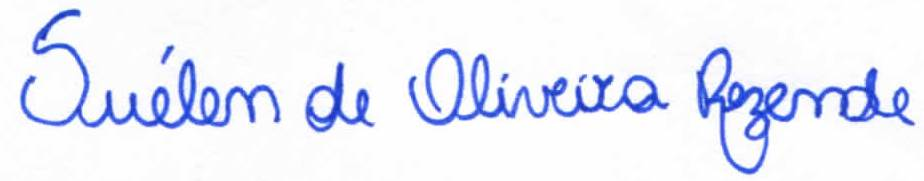 Suélen de Oliveira Rezende